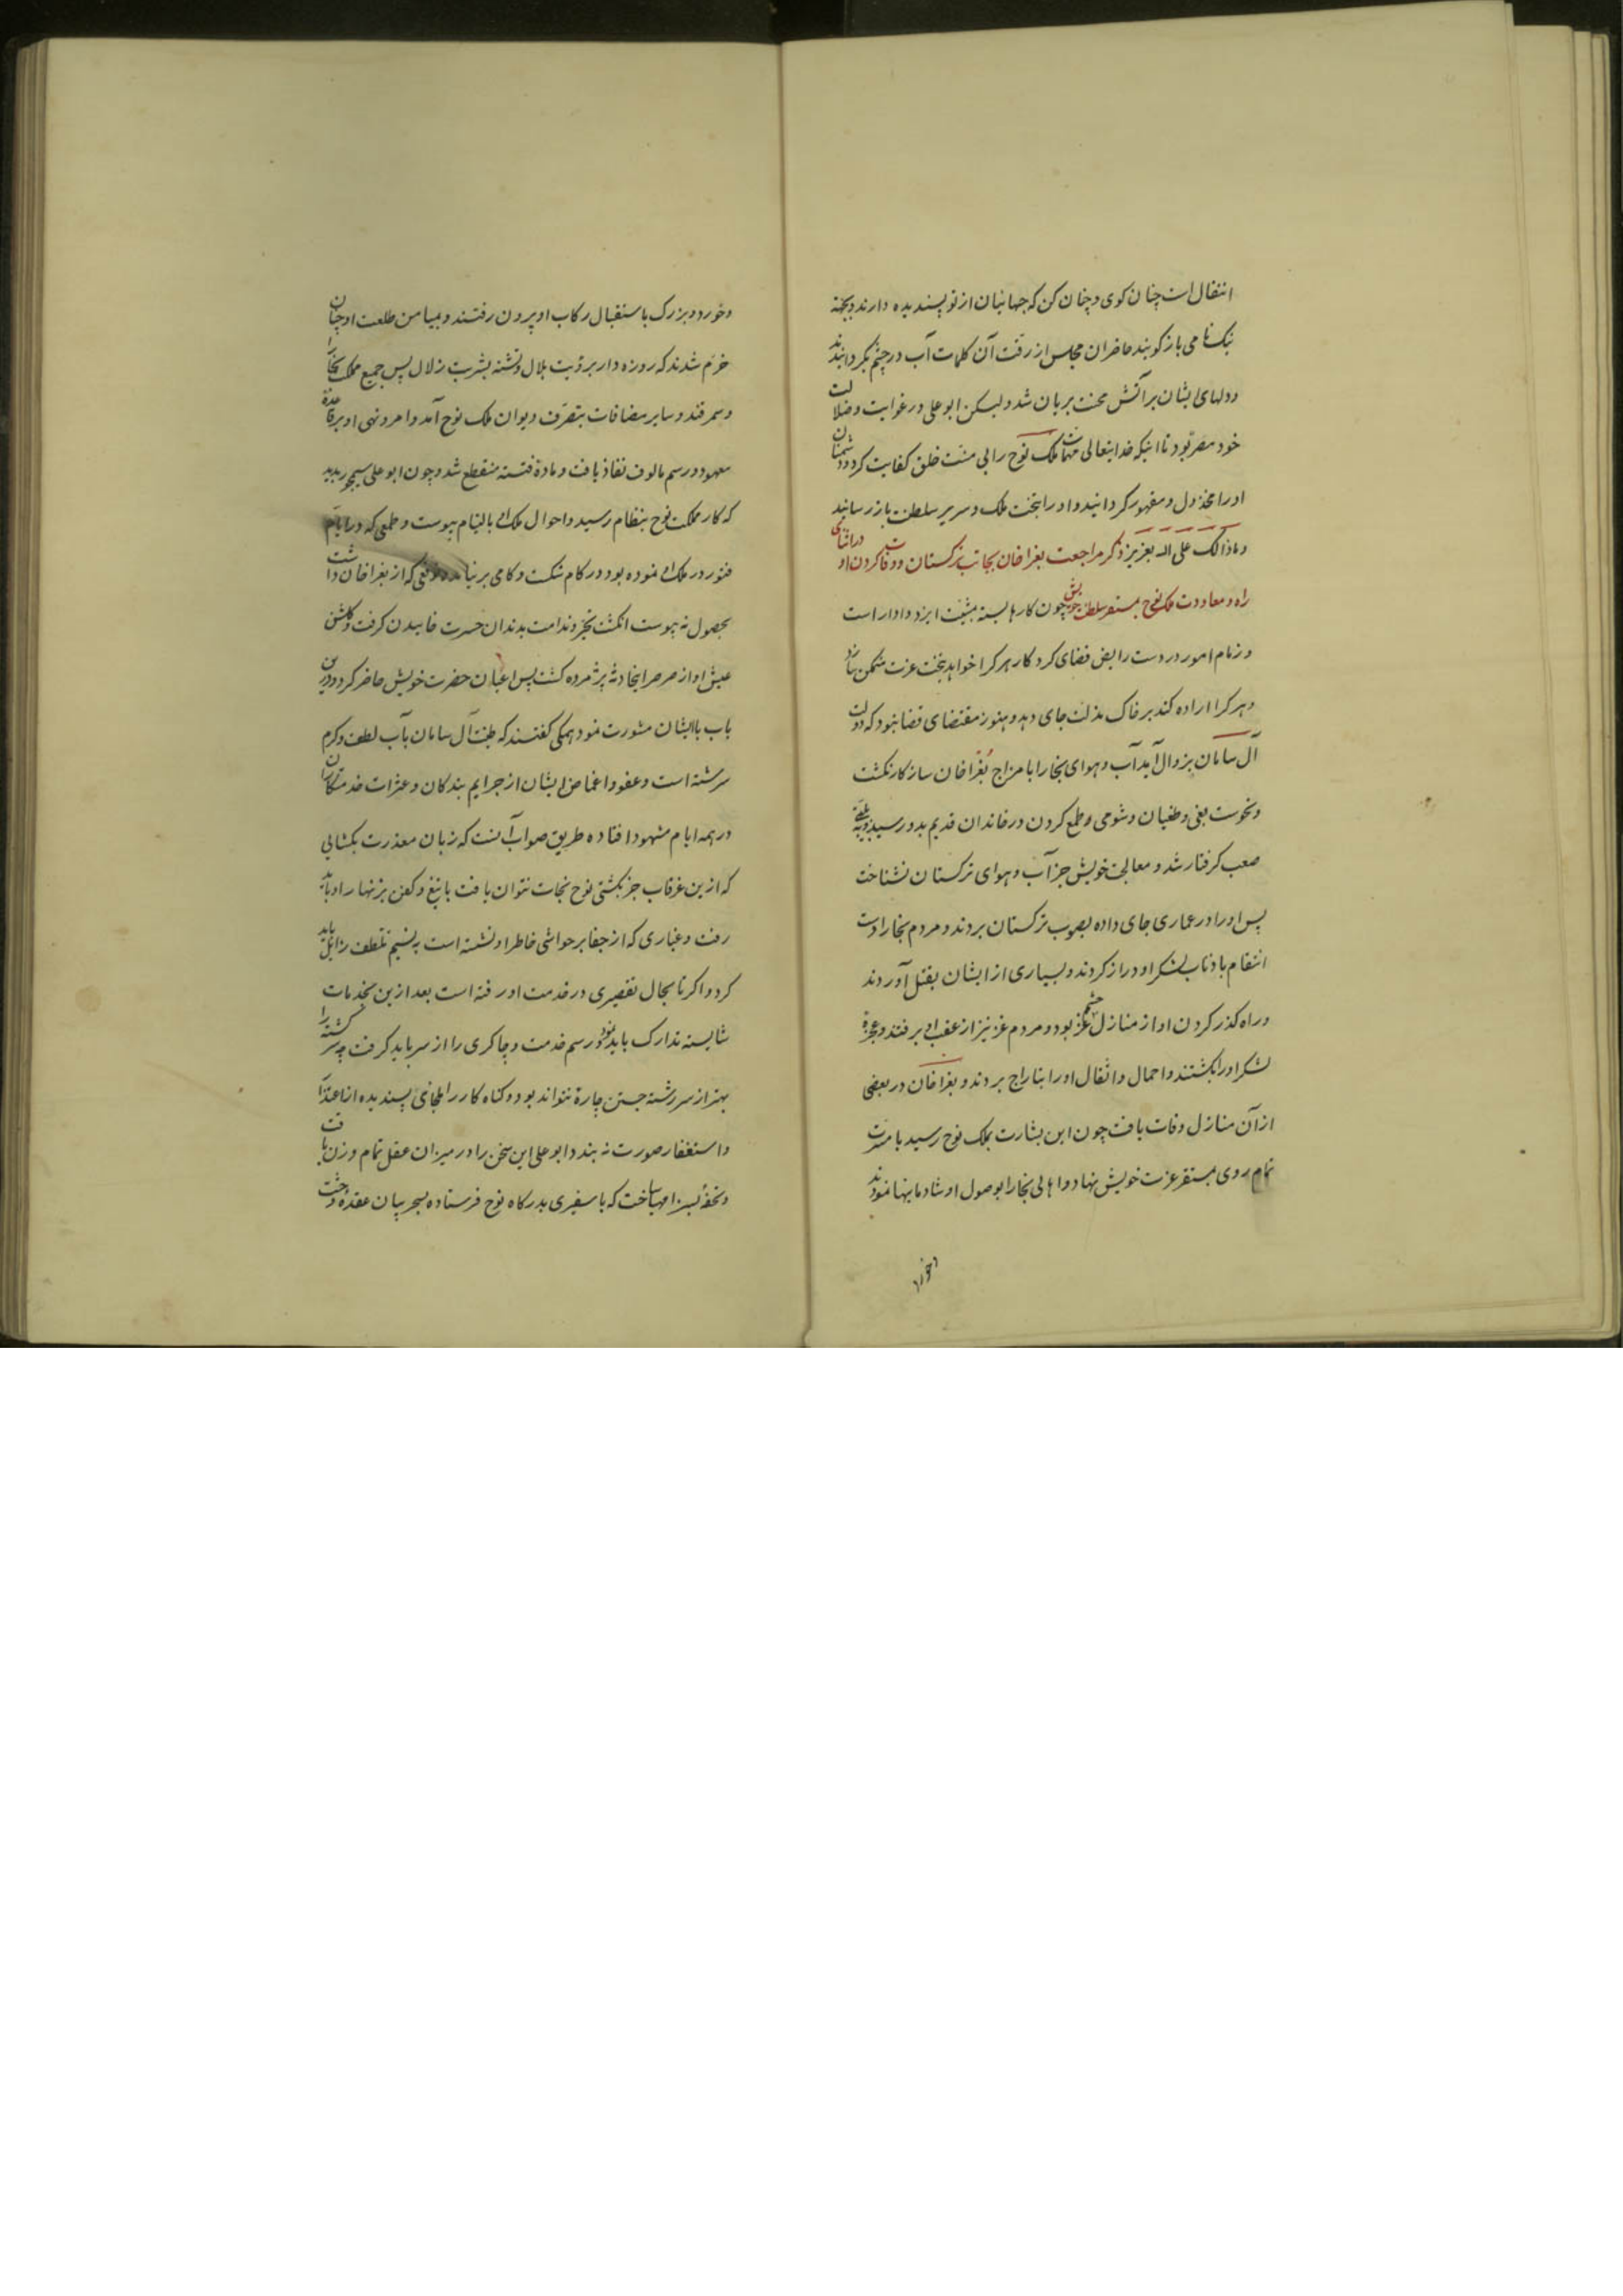 انتقال است چنان کوی و چنان کن که جهانیان از تو پسندیده دارند و بجهة
نیک نامی باز کویند حاضران مجلس از رقت آن کلمات آب در چشم بکردانیدند
و دلهای ایشان بر آتش محنت بریان شد و لیکن ابو علی در غوایت و ضلالت
خود مصر بود تا اینکه خدایتعالی مهمات ملک نوح را بی منت خلق کفایت کرد و دشمنان
او را مخذول و مقهور کردانید و او را بتخت ملک و سریر سلطنت باز رسانید
و ما ذالک علی الله بعزیز ذکر مراجعت بغراخان بجانب ترکستان و وفات کردن او در اثنای
راه و معاودت ملک نوح بمستقر سلطنت خویش چون کارها بسته بمشیت ایزد دادار است
و زمام امور در دست رایض قضای کردکار هر کرا خواهد بتخت عزت متمکن سازد
و هر کرا اراده کند بر خاک مذلت جای دهد و هنوز مقتضای قضا نبود که دولت
آل سامان بزوال آید آب و هوای بخارا با مزاج بغراخان سازکار نکشت
و نحوست بغی و طغیان و شومی و طمع کردن در خاندان قدیم بدو رسید و بعلتی
صعب کرفتار شد و معالجت خویش جز آب و هوای ترکستان نشناخت
پس او را در عماری جای داده بصوب ترکستان بردند و مردم بخارا دست
انتقام باذناب لشکر او دراز کردند و بسیاری از ایشان بقتل آوردند
و راه کذر کردن او از منازل حشم غز بود و مردم غز نیز از عقب او برفتند و عجزهٔ
لشکر او را بکشتند و احمال و اثقال او را بتاراج بردند و بغراخان در بعضی
از آن منازل وفات یافت چون این بشارت بملک نوح رسید با مسرت
تمام روی بمستقر عزت خویش نهاد و اهالی بخارا بوصول او شادمانیها نمودند
و خورد
و خورد و بزرک باستقبال رکاب او بیرون رفتند و بمیامن طلعت او چنان
خرم شدند که روزه دار برؤیت هلال و تشنه بشربت زلال پس جمیع مملکت بخارا
و سمرقند و سایر مضافات بتصرف دیوان ملک نوح آمد و امر و نهی او بر قاعدهٔ
معهود و رسم مالوف نفاذ یافت و مادهٔ فتنه منقطع شد و چون ابو علی سیمجور بدید
که کار مملکت نوح بنظام رسید و احوال ملک او بالتیام پیوست و طمعی که در ایام
فتور در ملک او نموده بود در کام شکست و کامی برنیامد و توقعی که از بغراخان داشت
بحصول نه پیوست انکشت تحیر و ندامت بدندان حسرت خاییدن کرفت و کلشن
عیش او از صرصر این حادثه پژمرده کشت پس اعیان حضرت خویش حاضر کرد و درین
باب با ایشان مشورت نمود همکی کفتند که طینت آل سامان بآب لطف و کرم
سرشته است و عفو و اغماض ایشان از جرایم بندکان و عثرات خدمتکاران
در همه ایام مشهود افتاده طریق صواب آنست که زبان معذرت بکشایی
که ازین غرقاب جز بکشتی نوح نجات نتوان یافت با تیغ و کفن بزنهار او باید
رفت و غباری که از جفا بر حواشی خاطر او نشسته است به نسیم تلطف زایل باید
کرد و اکر تا بحال تقصیری در خدمت او رفته است بعد ازین بخدمات
شایسته تدارک باید نمود و رسم خدمت و چاکری را از سر باید کرفت چه سرکشته را
بهتر از سررشته جستن چارهٔ نتواند بود و کناه کار را ملجائی پسندیده از اعتذار
و استغفار صورت نه بندد ابو علی این سخن را در میزان عقل تمام وزن یافت
و تحفهٔ بسزا مهیا ساخت که با سفیری بدرکاه نوح فرستاده بسحر بیان عقدهٔ وحشت